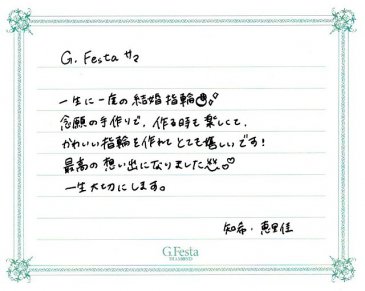 G. Festa サマ
一生に一度の結婚指輪
念願の手作りで、作る時も楽しくて、
かわいい指輪を作れてとても嬉しいです!
最高の想い出になりました
一生大切にします。
知希・恵里佳
G.Festa
DIAMOND